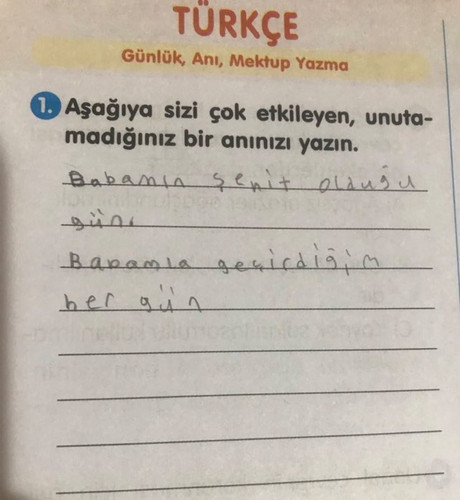 TÜRKÇE
Günlük, Anı, Mektup Yazma
1. Aşağıya sizi çok etkileyen, unuta-
madığınız bir anınızı yazın.
Babamın şehit olduğu
günü
Babamla geçirdiğim
her gün